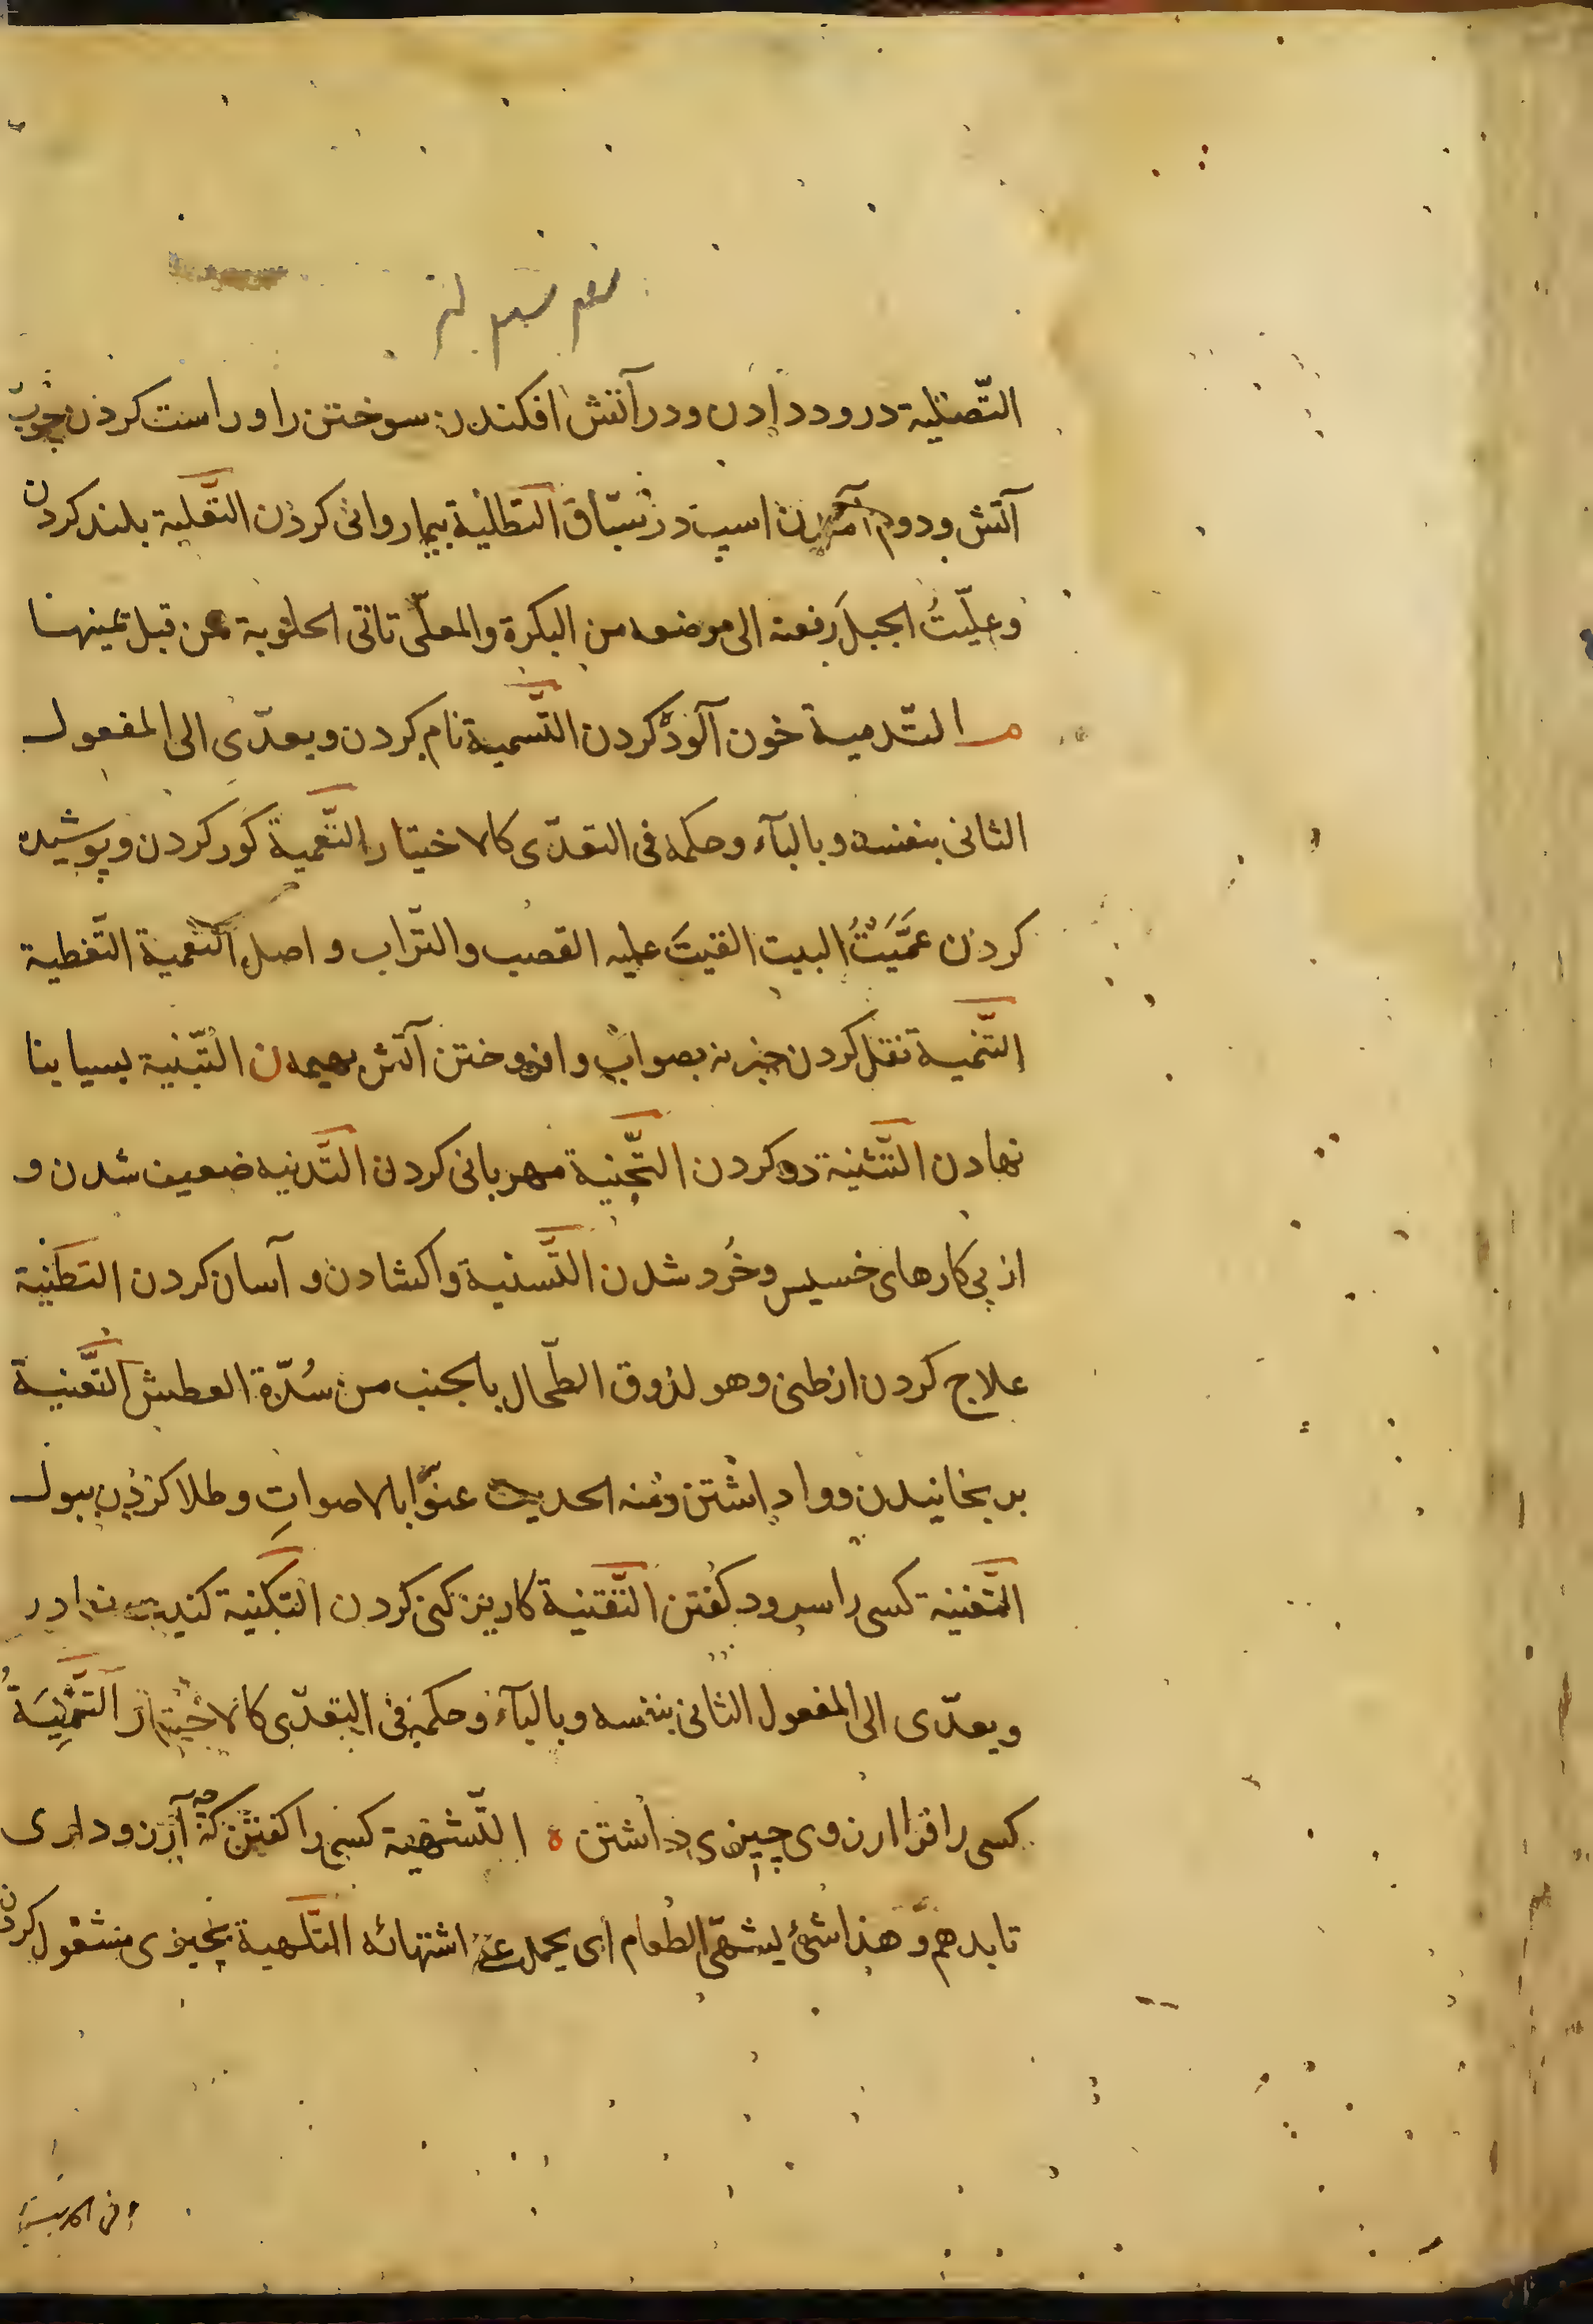 التّصلیة درود دادن ودر آتش افکندن سوختن را و راست کردن چوب
آتش ودوم آمدن اسپ در سباق التطلیة بیمار وانی کردن التّعلیة بلند کردن
وعلّیتُ الحبلَ رفعته الی موضعه من البکرة والمعلّی تاتی الحلوبة من قبل یمینها
م التّدمیة خون آلود کردن التَّسمیة نام کردن ویعدّی الی المفعول
الثانی بنفسه وبالبآء وحکمه فی التعدّی کالاختیار التّعمیة کور کردن و پوشیده
کردن عمَّیتُ البیت القیتَ علیه القصب والتّراب و اصل التعمیة التّغطیة
التَّنمیة نقل کردن خبر نه بصواب وافروختن آتش بهیمه ن التّبنیة بسیار بنا
نهادن التّثنیة دو کردن التّحنیة مهربانی کردن التّدنیه ضعیف شدن و
از پی کارهای خسیس وخُرد شدن التَّسنیة واکشادن و آسان کردن التطنیة
علاج کردن از طنی وهو لزوق الطّحال بالجنب من شدّة العطش التَّعنیة
برنخانیدن و وا داشتن ومنه الحدیث عنوّا بالاصواتِ وطلا کردن ببول
التَّغنیة کسی را سرود کفتن التَّقنیة کاریز کنی کردن التکنیة کنیت
ویعدّی الی المفعول الثانی بنفسه وبالبآء وحکمه فی التعدّی کالاختیار التَّمنِیَةُ
کسی را فرا ارزوی چیزی داشتن ه التّشهیة کسی را کفتن که چه آرزو داری
تا بدهم وهذا شئ یشهّی الطعام ای یحمل علی اشتهائه التّلهیة بچیزی مشغول کردن